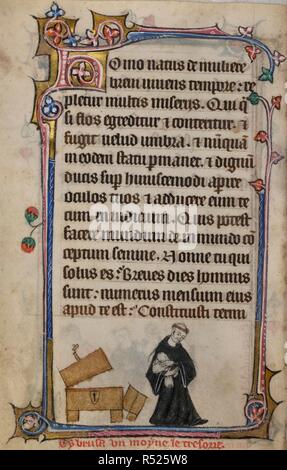 Omo natus de muliere
breui uiuens tempore: re
pletur multis miseriis. Qui q̄
si flos egreditur et conteritur. et
fugit uelud umbra. et nūquā
in eodem statu permanet. et dignū
ducis sup huiuscemodi apire
oculos tuos et adducere eum te
cum in iudicium. Quis potest
facere mundum de inmundo co
ceptum semine. Nonne tu qui
solus es: Breues dies hominis
sunt: numerus mensium eius
apud te est: Constituisti termi
Cy bruse un moyne le tresorie
alamy
Image ID: R525W8
www.alamy.com